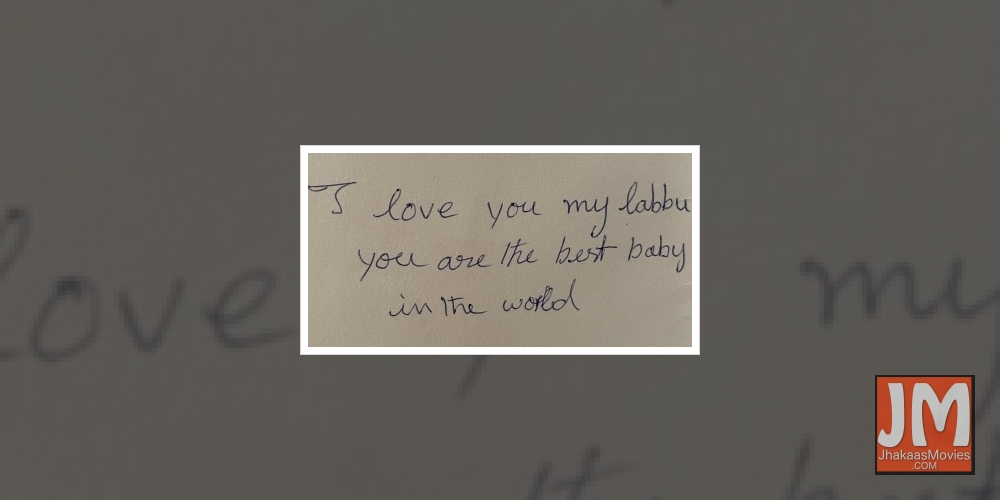 I love you my labbu
you are the best baby
in the world
love
my
JM
JhakaasMovies
.COM